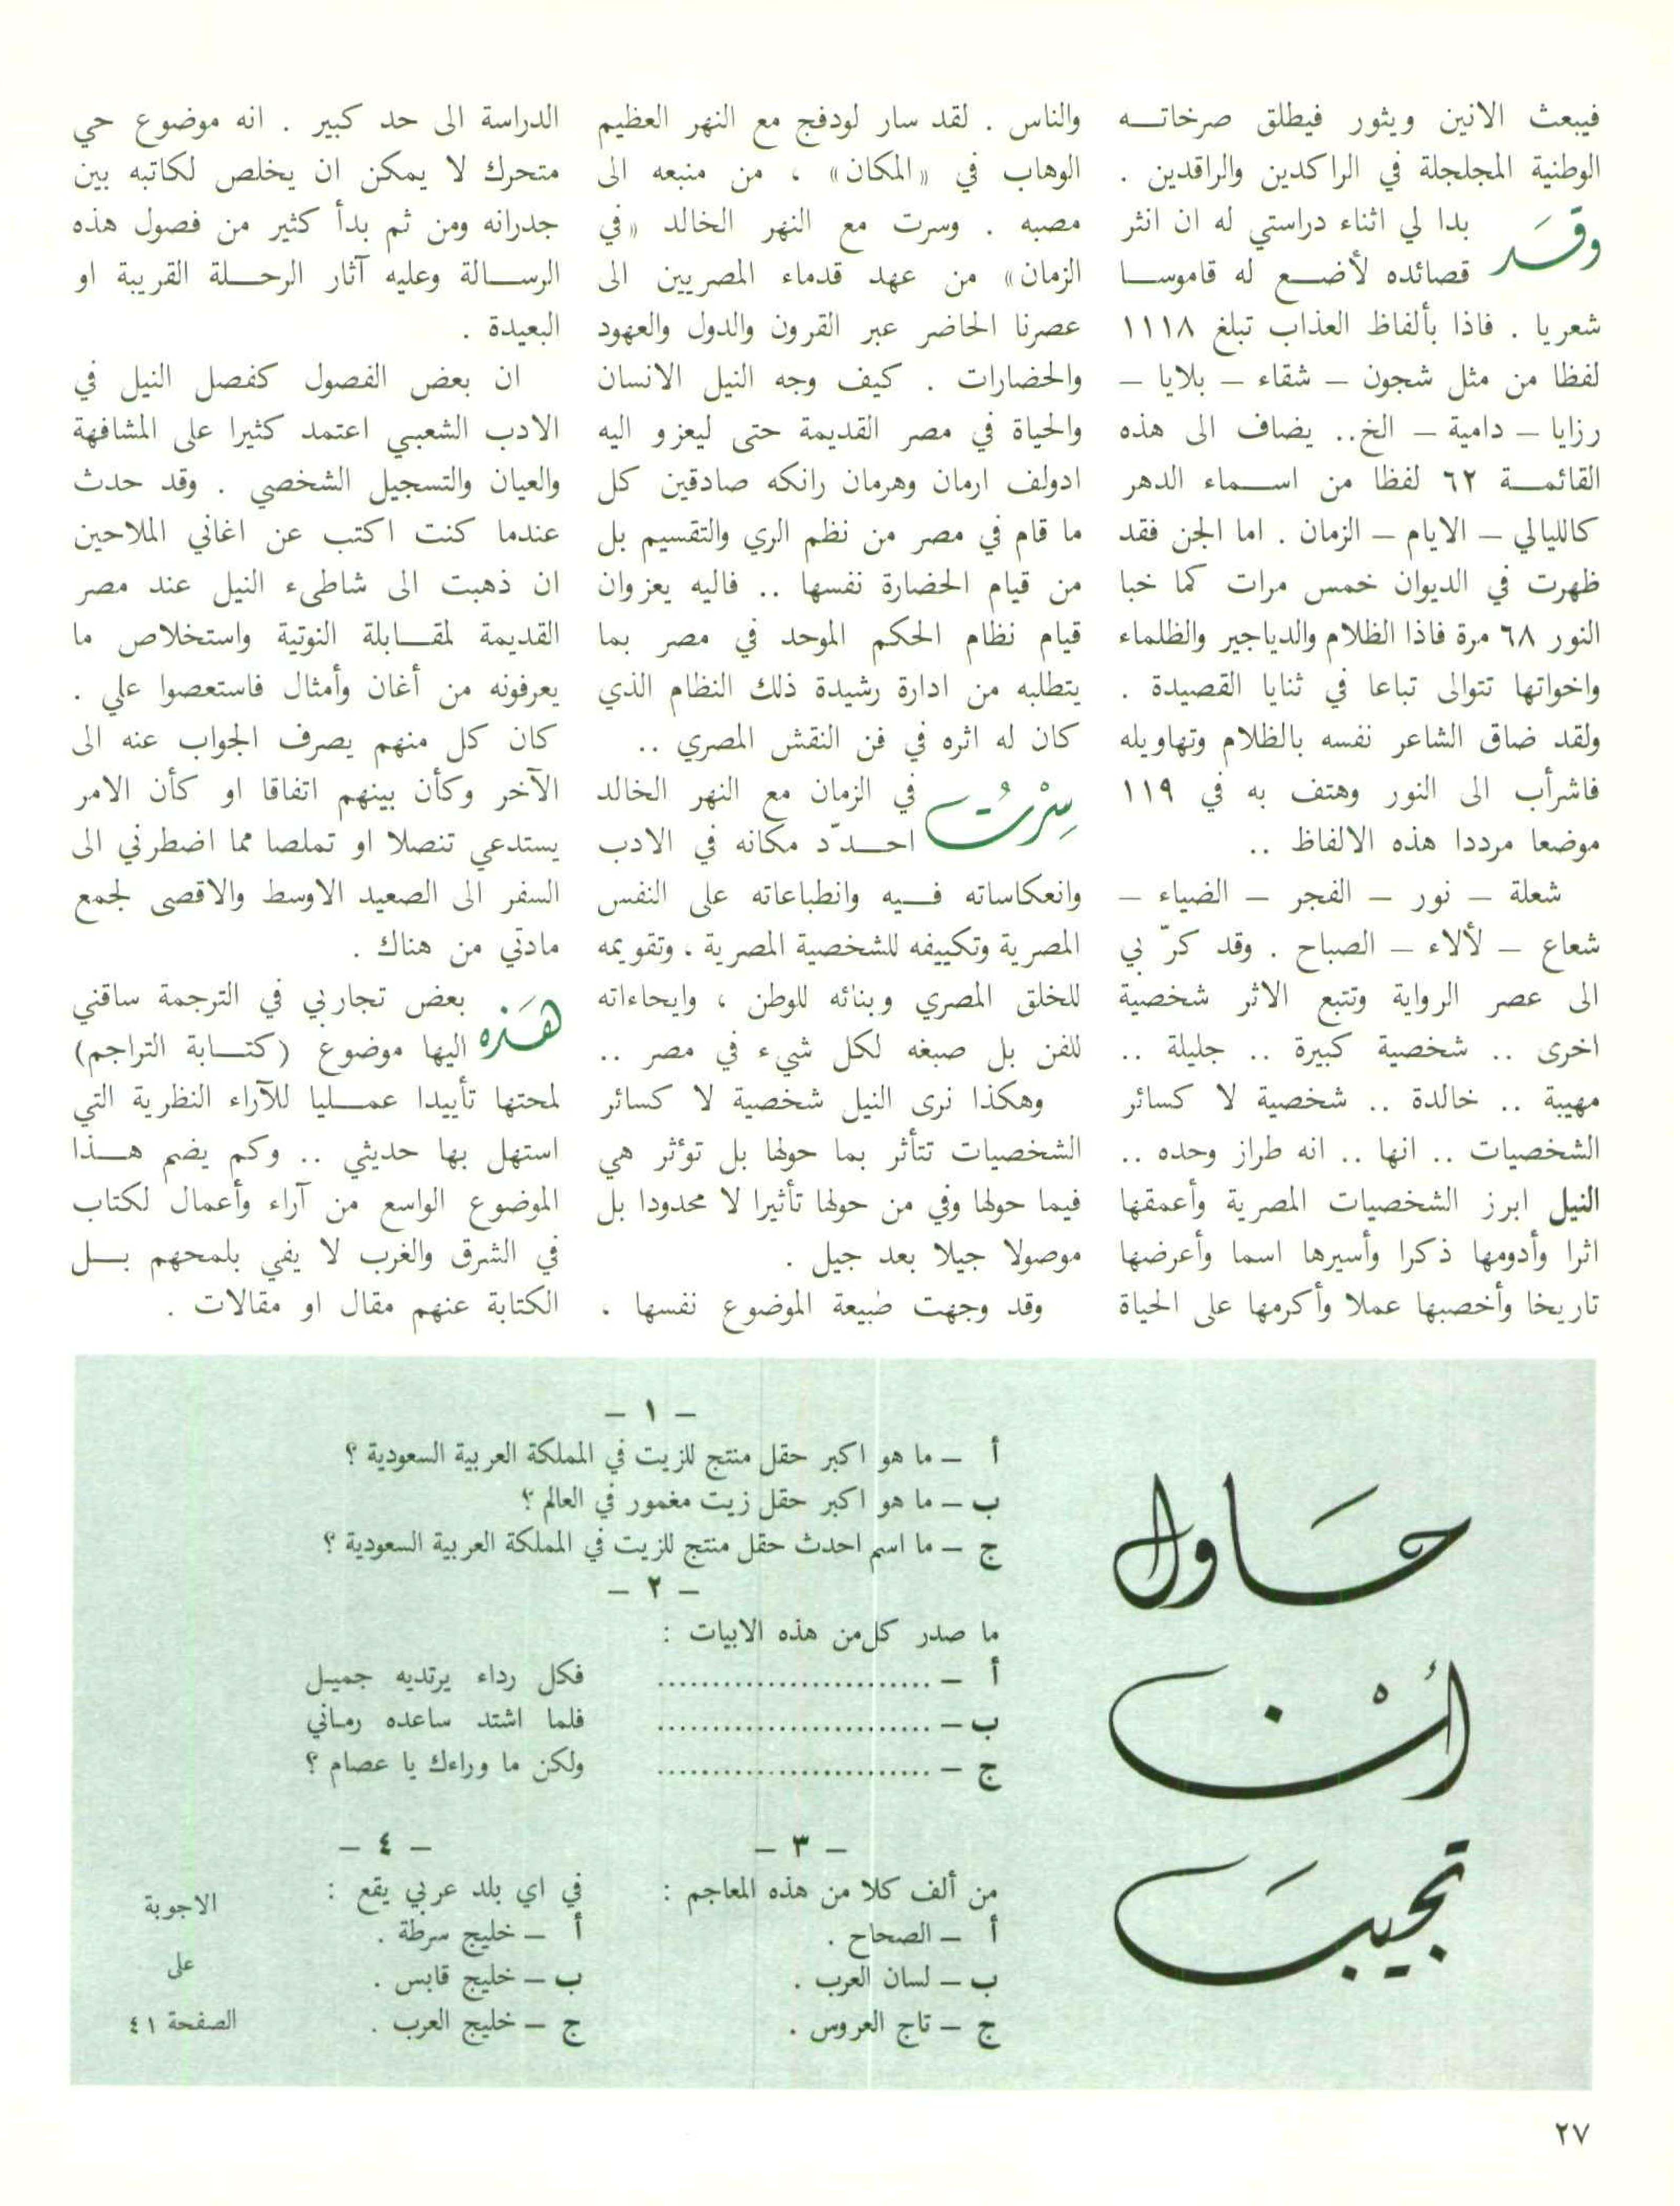 فيبعث الانين ويثور فيطلق صرخاته
الوطنية المجلجلة في الراكدين والراقدين .
وقد بدا لي اثناء دراستي له ان انثر
قصائده لأضع له قاموسا
شعريا . فاذا بألفاظ العذاب تبلغ ١١١٨
لفظا من مثل شجون – شقاء – بلايا –
رزايا – دامية – الخ.. يضاف الى هذه
القائمة ٦٢ لفظا من اسماء الدهر
كالليالي – الايام – الزمان . اما الجن فقد
ظهرت في الديوان خمس مرات كما خبا
النور ٦٨ مرة فاذا الظلام والدياجير والظلماء
واخواتها تتوالى تباعا في ثنايا القصيدة .
ولقد ضاق الشاعر نفسه بالظلام وتهاويله
فاشرأب الى النور وهتف به في ١١٩
موضعا مرددا هذه الالفاظ ..
شعلة – نور – الفجر – الضياء –
شعاع – لألاء – الصباح . وقد كرّ بي
الى عصر الرواية وتتبع الاثر شخصية
اخرى .. شخصية كبيرة .. جليلة ..
مهيبة .. خالدة .. شخصية لا كسائر
الشخصيات .. انها .. انه طراز وحده ..
النيل ابرز الشخصيات المصرية وأعمقها
اثرا وأدومها ذكرا وأسيرها اسما وأعرضها
تاريخا وأخصبها عملا وأكرمها على الحياة
والناس . لقد سار لودفج مع النهر العظيم
الوهاب في «المكان» ، من منبعه الى
مصبه . وسرت مع النهر الخالد «في
الزمان» من عهد قدماء المصريين الى
عصرنا الحاضر عبر القرون والدول والعهود
والحضارات . كيف وجه النيل الانسان
والحياة في مصر القديمة حتى ليعزو اليه
ادولف ارمان وهرمان رانكه صادقين كل
ما قام في مصر من نظم الري والتقسيم بل
من قيام الحضارة نفسها .. فاليه يعزوان
قيام نظام الحكم الموحد في مصر بما
يتطلبه من ادارة رشيدة ذلك النظام الذي
كان له اثره في فن النقش المصري ..
سِرْتُ في الزمان مع النهر الخالد
احدّد مكانه في الادب
وانعكاساته فيه وانطباعاته على النفس
المصرية وتكييفه للشخصية المصرية ، وتقويمه
للخلق المصري وبنائه للوطن ، وايحاءاته
للفن بل صبغه لكل شيء في مصر ..
وهكذا نرى النيل شخصية لا كسائر
الشخصيات تتأثر بما حولها بل تؤثر هي
فيما حولها وفي من حولها تأثيرا لا محدودا بل
موصولا جيلا بعد جيل .
وقد وجهت طبيعة الموضوع نفسها ،
الدراسة الى حد كبير . انه موضوع حي
متحرك لا يمكن ان يخلص لكاتبه بين
جدرانه ومن ثم بدأ كثير من فصول هذه
الرسالة وعليه آثار الرحلة القريبة او
البعيدة .
ان بعض الفصول كفصل النيل في
الادب الشعبي اعتمد كثيرا على المشافهة
والعيان والتسجيل الشخصي . وقد حدث
عندما كنت اكتب عن اغاني الملاحين
ان ذهبت الى شاطىء النيل عند مصر
القديمة لمقابلة النوتية واستخلاص ما
يعرفونه من أغان وأمثال فاستعصوا علي .
كان كل منهم يصرف الجواب عنه الى
الآخر وكأن بينهم اتفاقا او كأن الامر
يستدعي تنصلا او تملصا مما اضطرني الى
السفر الى الصعيد الاوسط والاقصى لجمع
مادتي من هناك .
هَذه بعض تجاربي في الترجمة ساقني
اليها موضوع (كتابة التراجم)
لمحتها تأييدا عمليا للآراء النظرية التي
استهل بها حديثي .. وكم يضم هذا
الموضوع الواسع من آراء وأعمال لكتاب
في الشرق والغرب لا يفي بلمحهم بل
الكتابة عنهم مقال او مقالات .
حَاول
أنْ
تجيبَ
– ١ –
أ – ما هو اكبر حقل منتج للزيت في المملكة العربية السعودية ؟
ب – ما هو اكبر حقل زيت مغمور في العالم ؟
ج – ما اسم احدث حقل منتج للزيت في المملكة العربية السعودية ؟
– ٢ –
ما صدر كل من هذه الابيات :
أ – .......................... فكل رداء يرتديه جميل
ب – .......................... فلما اشتد ساعده رماني
ج – .......................... ولكن ما وراءك يا عصام ؟
– ٣ –
من ألف كلا من هذه المعاجم :
أ – الصحاح .
ب – لسان العرب .
ج – تاج العروس .
– ٤ –
في اي بلد عربي يقع :
أ – خليج سرطة .
ب – خليج قابس .
ج – خليج العرب .
الاجوبة
على
الصفحة ٤١
٢٧